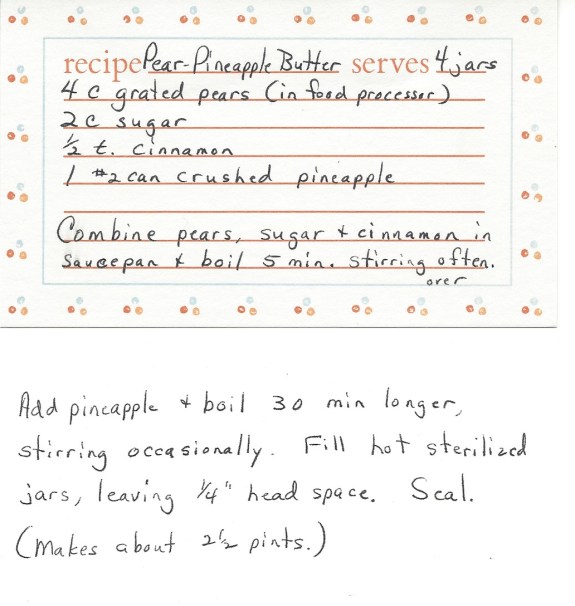 recipe Pear-Pineapple Butter serves 4 jars
4 c grated pears (in food processor)
2c sugar
½ t. cinnamon
1 #2 can crushed pineapple
Combine pears, sugar + cinnamon in
saucepan + boil 5 min. stirring often.
over
Add pineapple + boil 30 min longer,
stirring occasionally. Fill hot sterilized
jars, leaving ¼" head space. Seal.
(Makes about 2½ pints.)